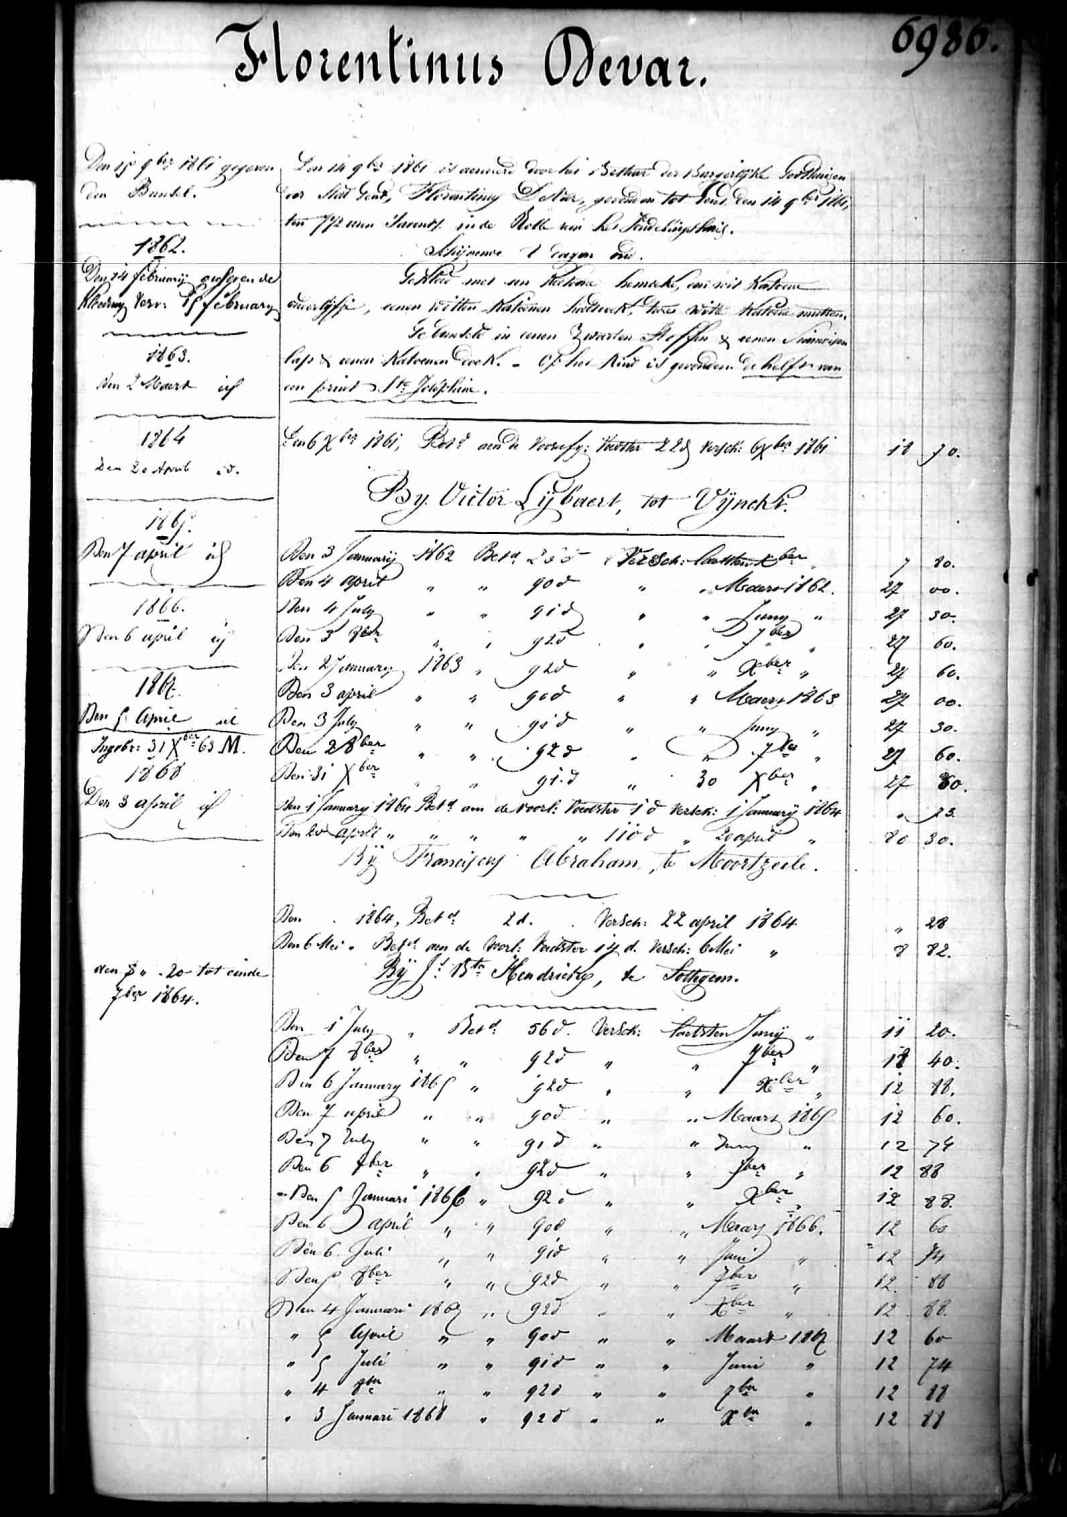 6986.
Florentinus Devar.
Den 15 9ber 1861 gegeven
den Bundel.
1862.
Den 14 februarij gegeven de
Kleeding Verv: 15 february
1863.
den 2 Maart id
1864
Den 20 April id.
1865.
Den 7 april id
1866.
Den 6 april id
1867.
Den 5 April id
Ingebr: 31 Xber 63 M.
1868
Den 3 april id
den 20 tot einde
7ber 1864.
Den 14 9ber 1861 is door het Bestuur der Burgerlijke Godshuizen
der Stad Gend, Florentinus Devar, gevonden tot Gend den 14 9ber 1861,
ten 7 1/2 uren 's avonds in de Rolle van het Vondelingshuis.
Schijnende 8 dagen oud.
Gekleed met een Katoene hemdeke, een wit Katoene
onderlijfje, eenen witten Katoenen halsdoek, twee witte Katoene mutsen.
Gebundeld in eenen zwarten Stoffen & eenen Siamoisen
lap & eenen Katoenen doek. - Op het Kind is gevonden de helft van
een print Ste Josephine.
Den 6 Xber 1861, Betd aan de Voedster 22d Versch: 6 Xber 1861 18 70.
By Victor Lijbaert, tot Vijnckt.
Den 3 Januarij 1862 Betd 25d Versch: laatsten Xber 7 80.
Den 4 april " " 90d " " Maart 1862. 27 00.
Den 4 July " " 91d " " Juny " 27 30.
Den 3 8ber " " 92d " " 7ber " 27 60.
Den 2 January 1863 " 92d " " Xber " 27 60.
Den 3 april " " 90d " " Maart 1863 27 00.
Den 3 July " " 91d " " Juny " 27 30.
Den 2 8ber " " 92d " " 7ber " 27 60.
Den 31 Xber " " 91d " 30 Xber " 27 80.
Den 1 January 1864 Betd aan de voorl: Voedster 1d Versch: 1 Januarij 1864 " 23.
Den 20 april " " " " " 110d " 20 april " 20 30.
Bij Franciscus Abraham, te Moortzeele.
Den 1864, Betd 2d. Versch: 22 april 1864 " 28
Den 6 Mei " Betd aan de Voorl: Voedster 14d. Versch: 6 Mei " 8 82.
Bij Jn Bte Hendrickx, te Sottegem.
Den 1 July " Betd 56d. Versch: laatsten Junij " 11 20.
Den 7 8ber " " 92d " " 7ber " 18 40.
Den 6 January 1865 " 92d " " Xber " 12 88.
Den 7 april " " 90d " " Maart 1865 12 60.
Den 7 July " " 91d " " Juny " 12 74
Den 6 8ber " " 92d " " 7ber " 12 88
Den 5 Januari 1866 " 92d " " Xber " 12 88.
Den 6 april " " 90d " " Maart 1866. 12 60
Den 6 Juli " " 91d " " Juni " 12 74
Den 5 8ber " " 92d " " 7ber " 12 88
Den 4 Januari 1867 " 92d " " Xber " 12 88.
" 5 April " " 90d " " Maart 1867 12 60
" 5 Juli " " 91d " " Juni " 12 74
" 4 8ber " " 92d " " 7ber " 12 88
" 3 Januari 1868 " 92d " " Xber " 12 88